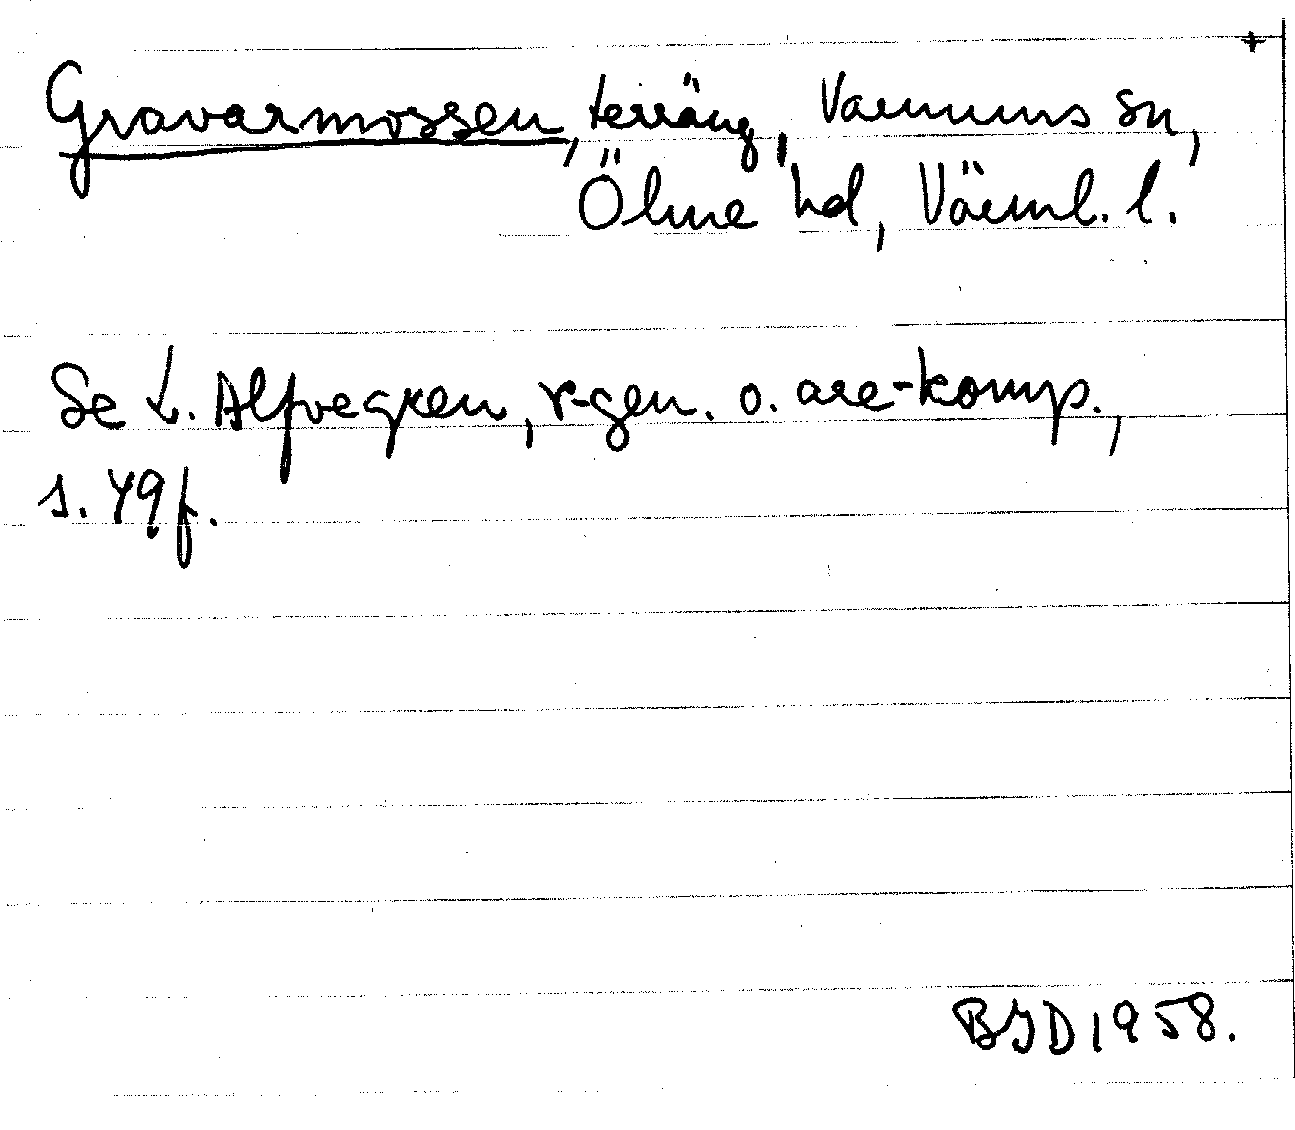 +
Gravarmossen, terräng, Varnums sn,
Ölme hd, Värml. l.
Se L. Alfvegren, r-gen. o. are-komp.,
s. 49 f.
BJD 1958.